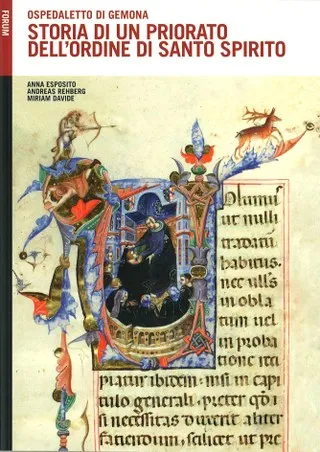 FORUM
OSPEDALETTO DI GEMONA
STORIA DI UN PRIORATO
DELL'ORDINE DI SANTO SPIRITO
ANNA ESPOSITO
ANDREAS REHBERG
MIRIAM DAVIDE
Volumus
ut nulli
tradatur
habitus.
nec ullus
in obla
tum uel
in proba
tione
piatur ibidem. nisi in capi
tulo generali. preter
si necessitas aliter
faciendum. scilicet ut pre